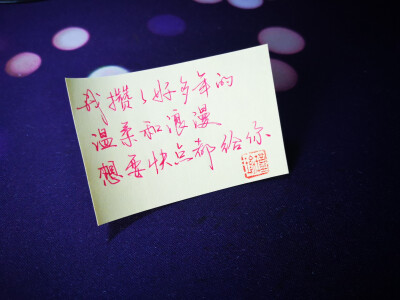 我攒了好多年的
温柔和浪漫
想要快点都给你